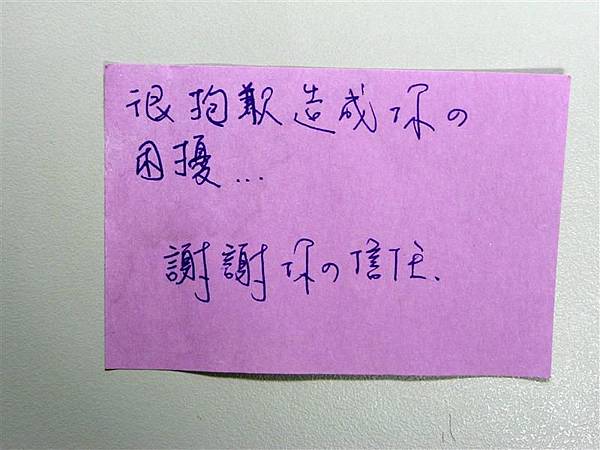 很抱歉造成你の
困擾...
謝謝你の信任.